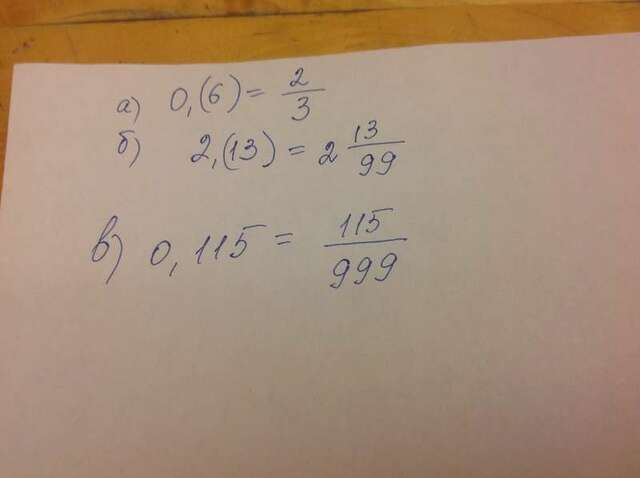 а) 0,(6) = 2/3
б) 2,(13) = 2 13/99
в) 0,115 = 115/999